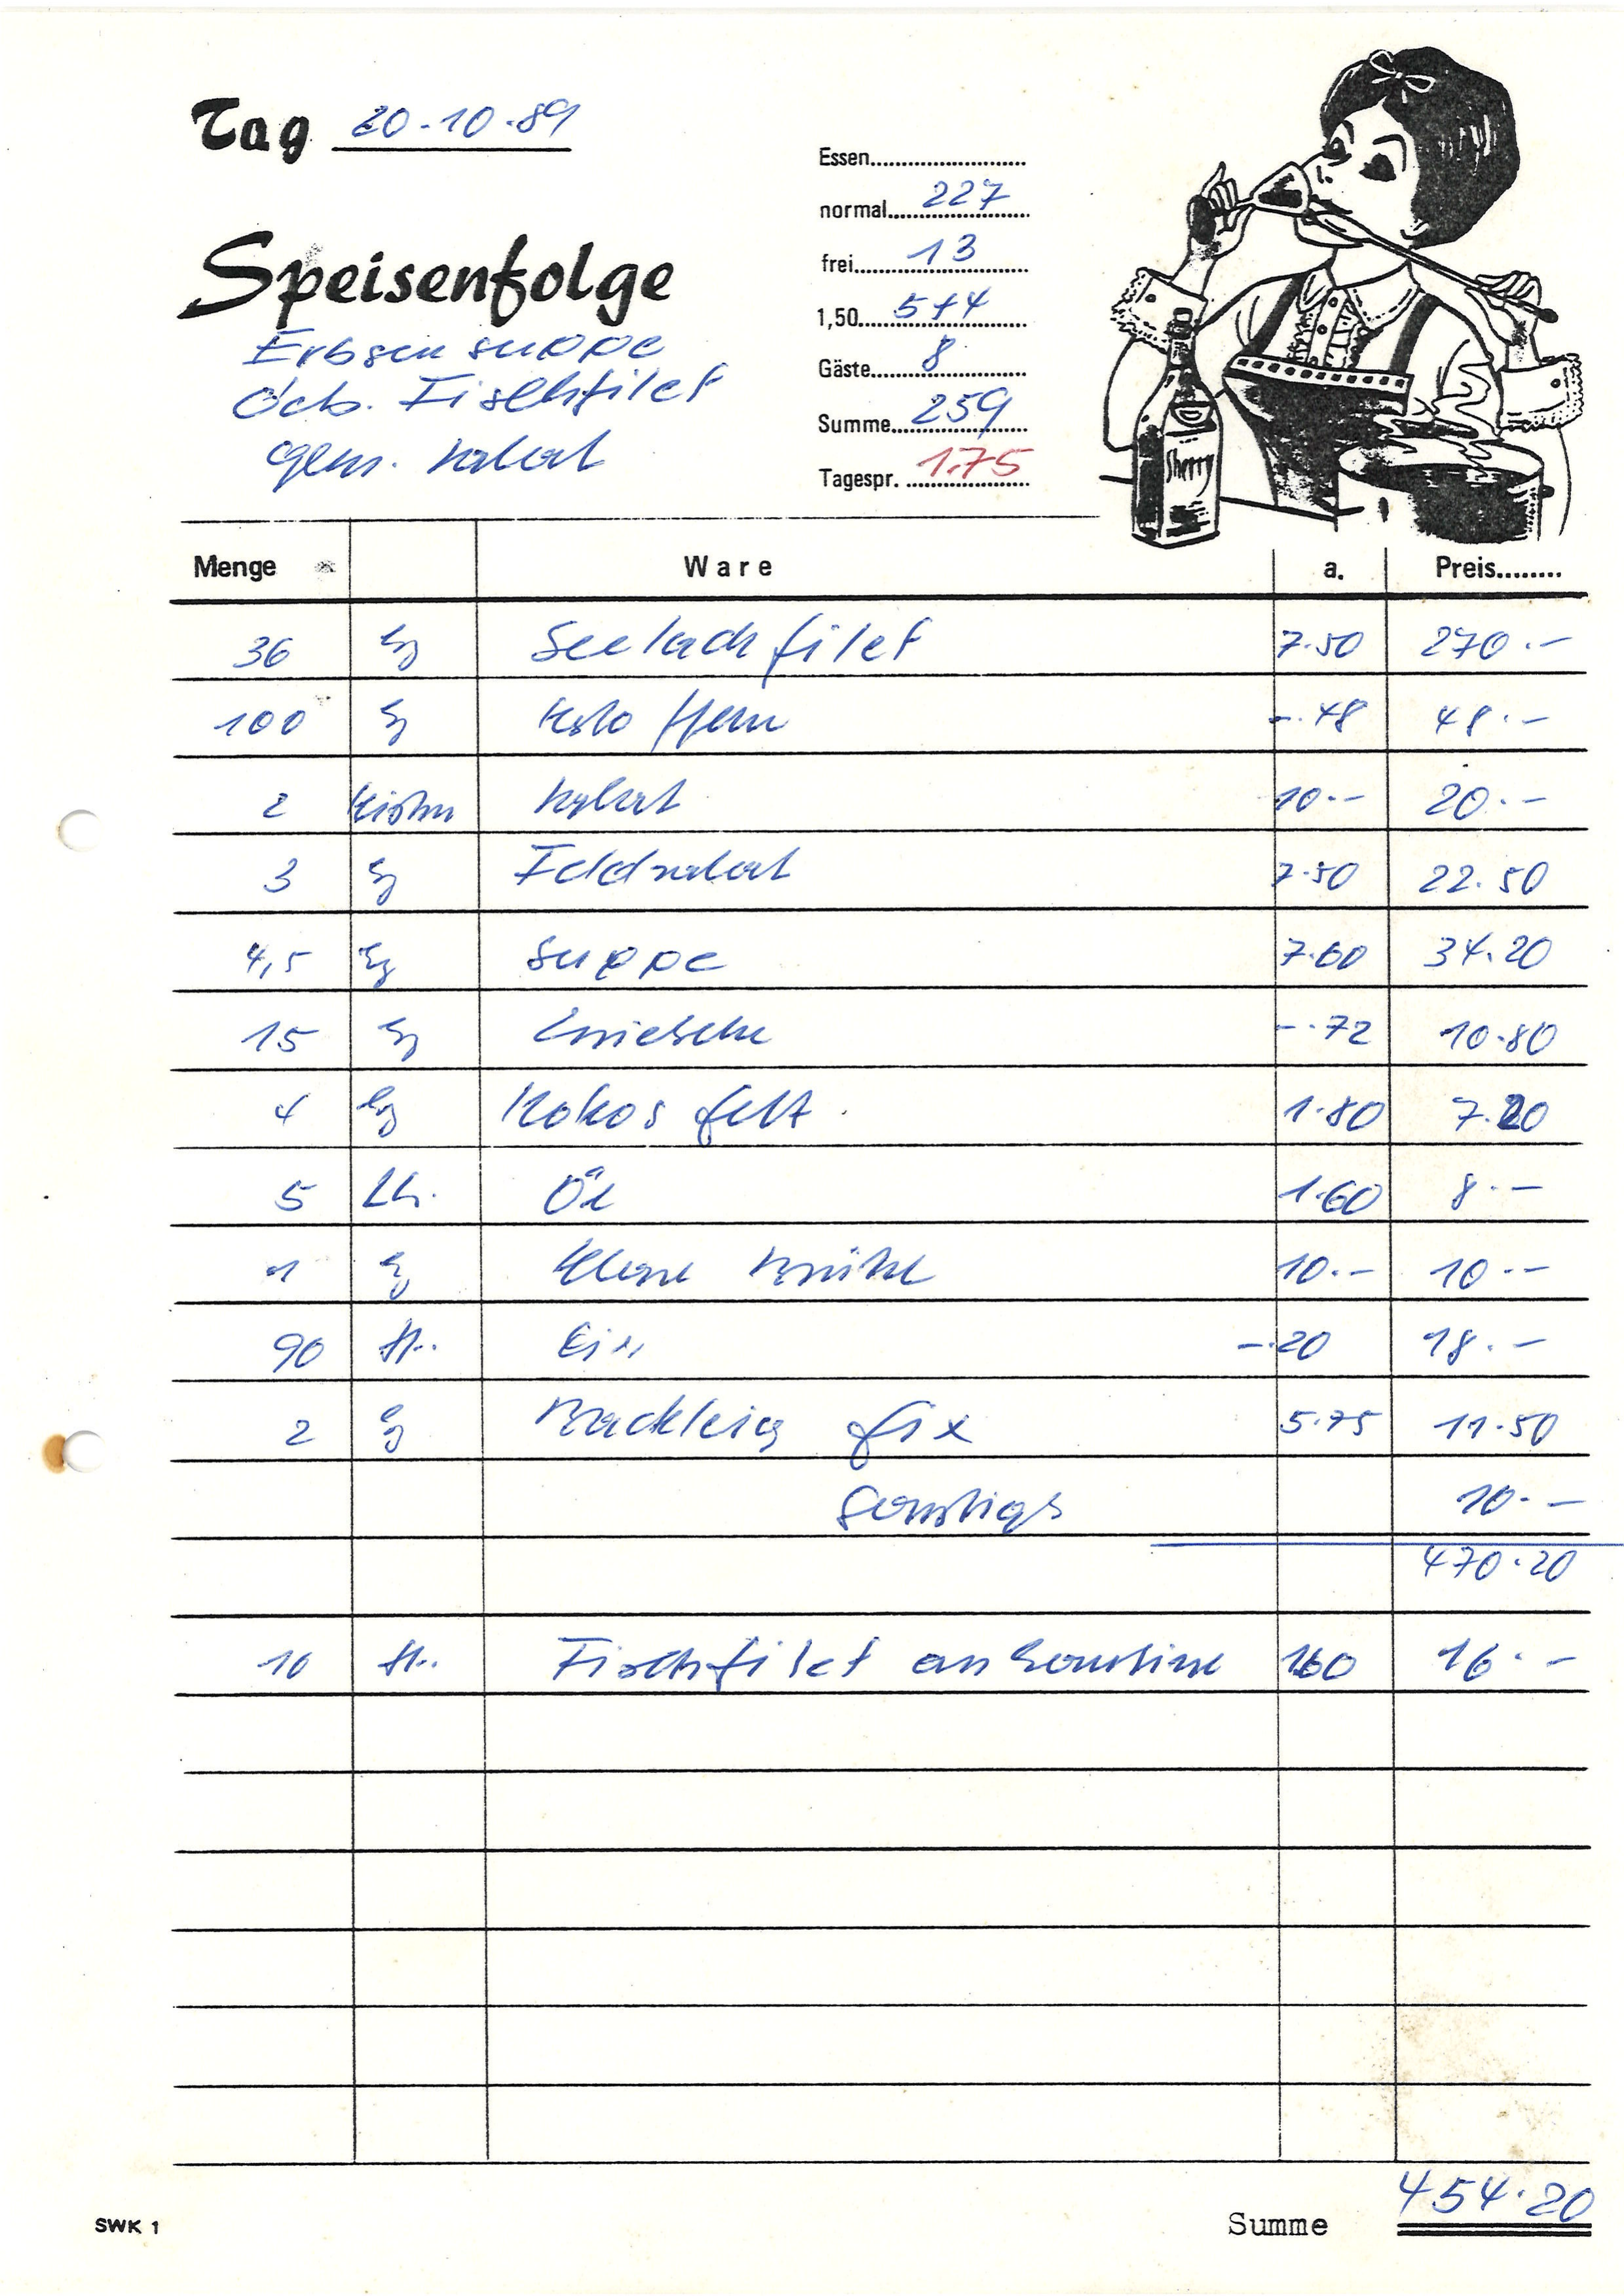 Tag 20.10.89
Essen
normal 227
frei 13
1,50 5+4
Gäste 8
Summe 259
Tagespr. 1.75
Speisenfolge
Erbsensuppe
Geb. Fischfilet
gem. Salat
Sherry
Menge Ware a. Preis
36 kg Seelachfilet 7.50 270.-
100 kg Kartoffeln -.48 48.-
2 Kisten Salat 10.- 20.-
3 kg Feldsalat 7.50 22.50
4,5 kg Suppe 7.60 34.20
15 kg Zwiebeln -.72 10.80
4 kg Kokosfett 1.80 7.20
5 Ltr. Öl 1.60 8.-
1 kg Klare Brühe 10.- 10.-
90 St. Eier -.20 18.-
2 kg Backteig fix 5.75 11.50
Sonstiges 10.-
470.20
10 St. Fischfilet an Kantine 160 16.-
SWK 1
Summe 454.20